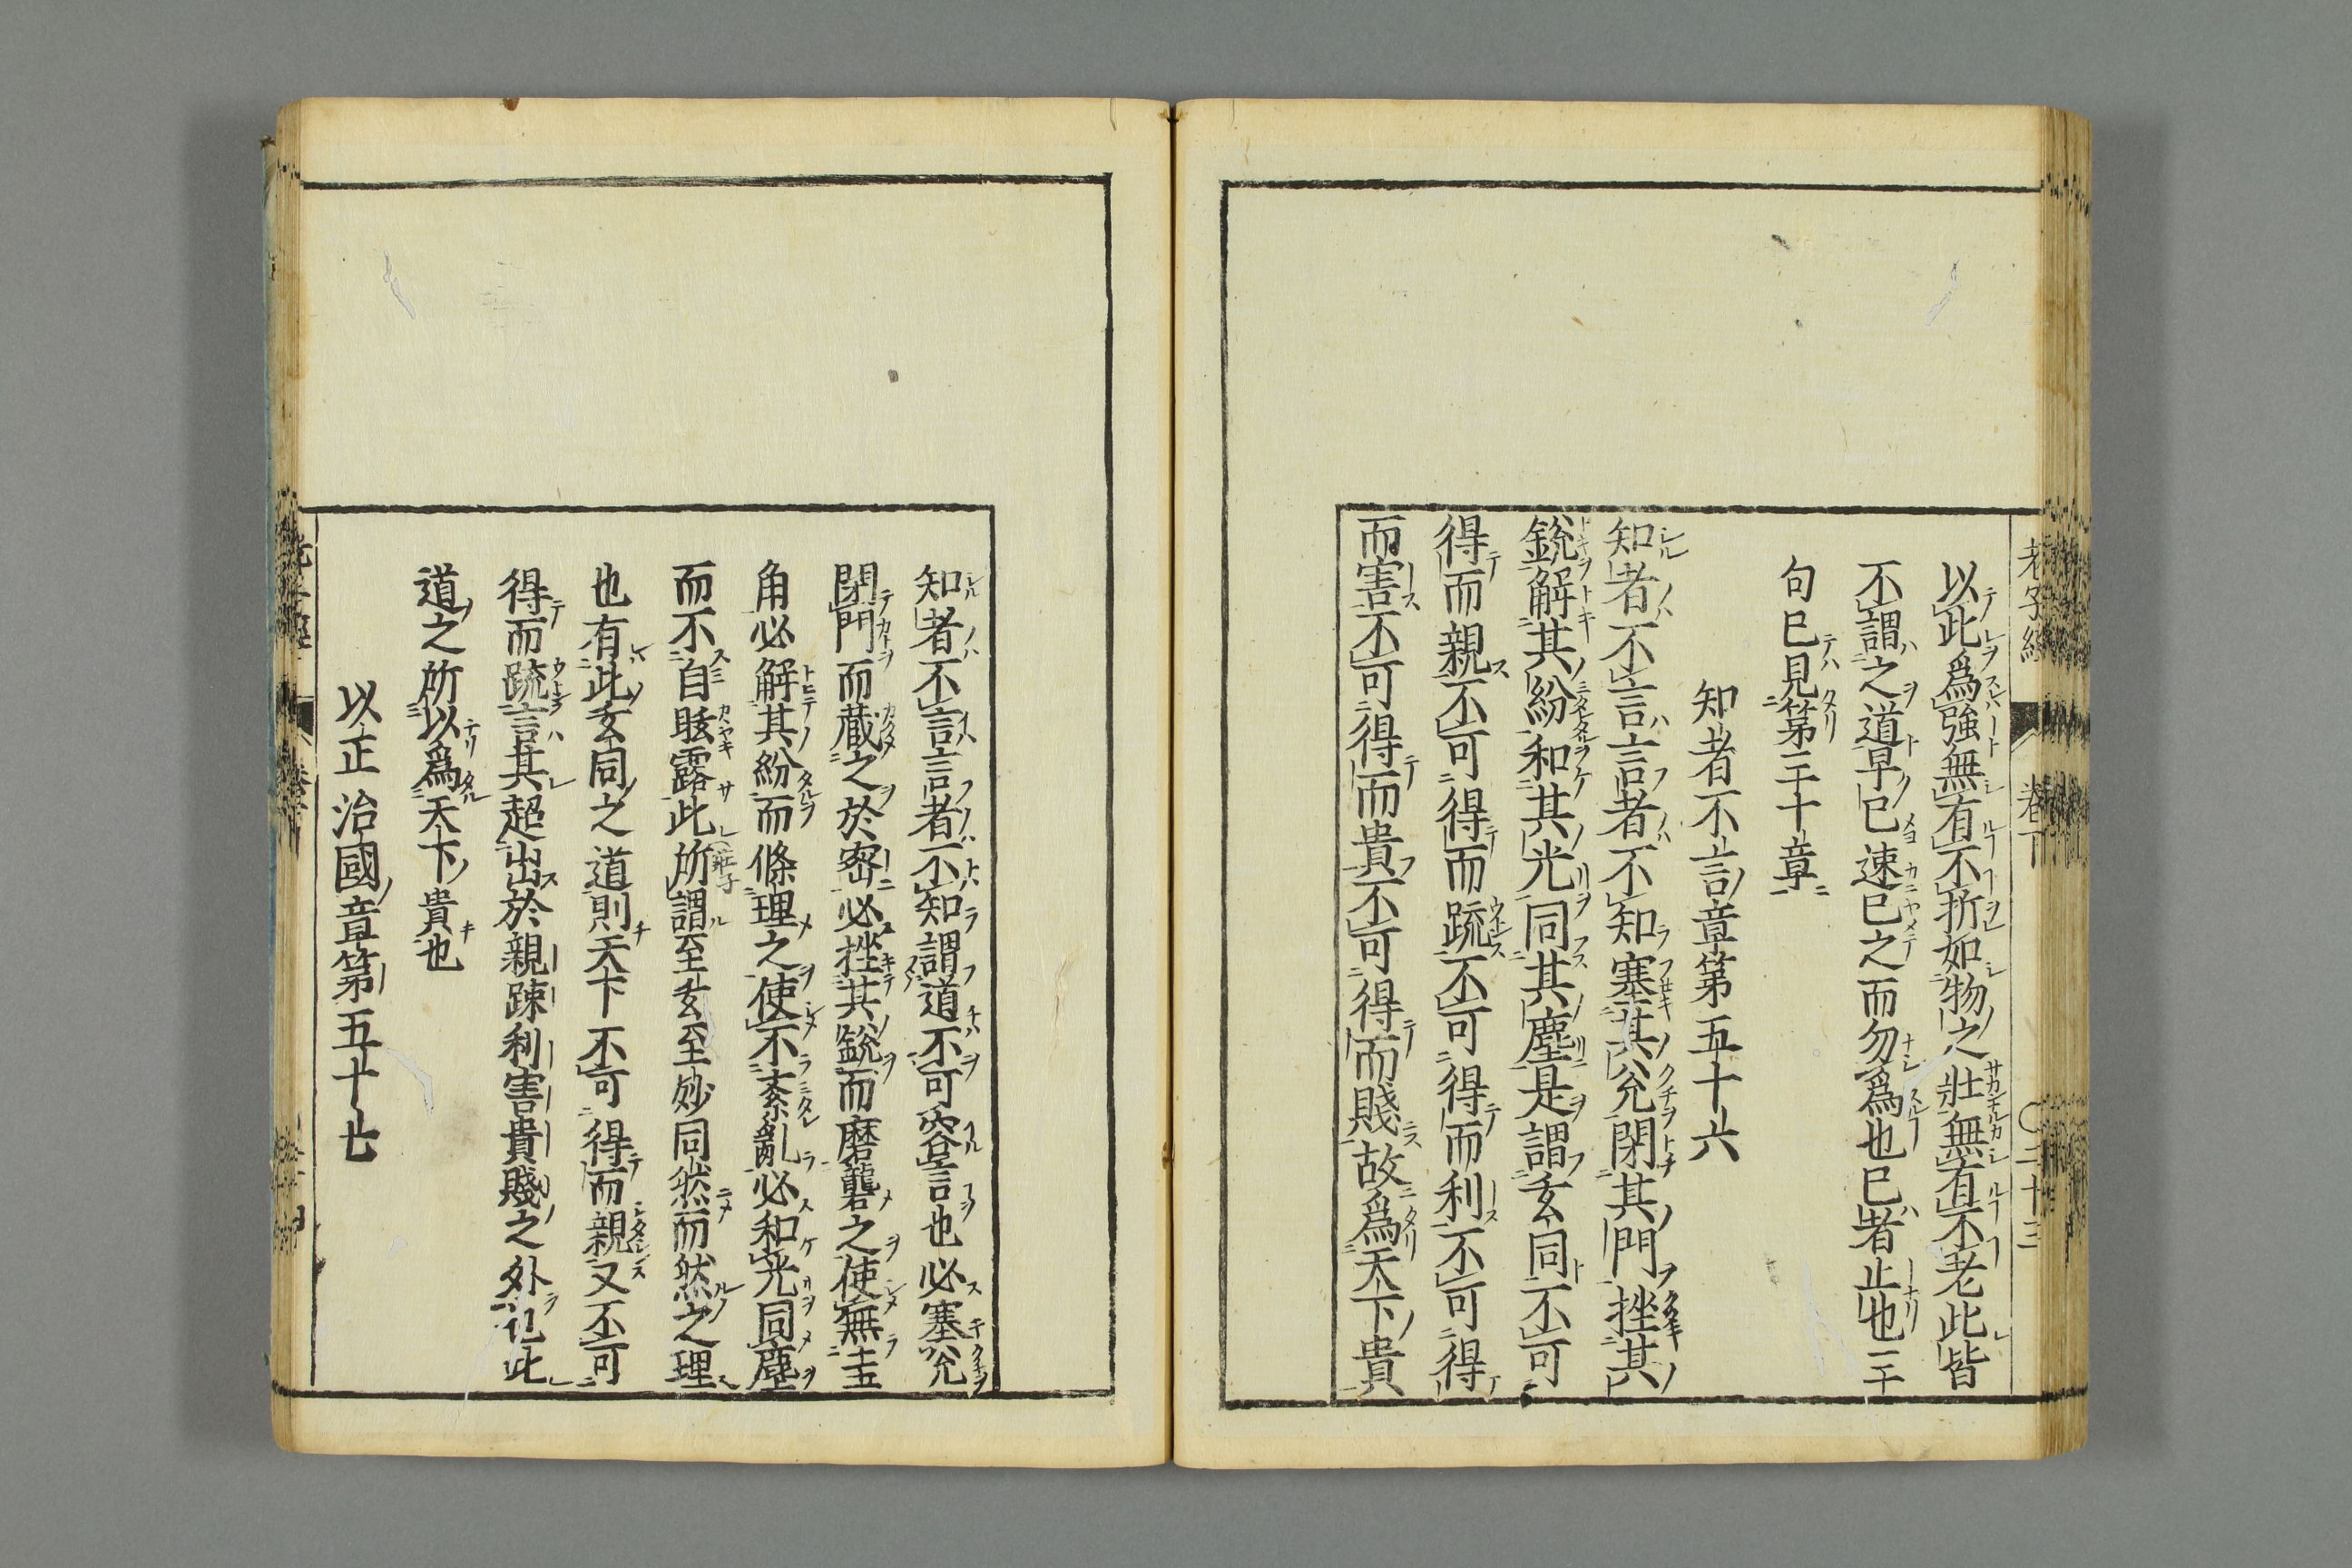 老子經 卷下 〇三十三
以此爲強無有不折如物之壯無有不老此皆
不謂之道早已速已之而勿爲也已者止也三
句已見第三十章
知者不言章第五十六
知者不言言者不知塞其兌閉其門挫其
銳解其紛和其光同其塵是謂玄同不可
得而親不可得而疏不可得而利不可得
而害不可得而貴不可得而賤故爲天下貴
知者不言言者不知謂道不可容言也必塞兌
閉門而蔵之於密必挫其銳而磨礱之使無圭
角必解其紛而條理之使不紊亂必和光同塵
而不自眩露此所謂至玄至妙同然而然之理
也有此玄同之道則天下不可得而親又不可
得而疏言其超出於親踈利害貴賤之外也此
道之所以爲天下貴也
以正治國章第五十七